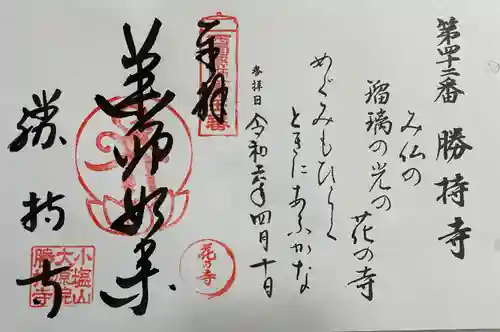 第四十二番 勝持寺
み仏の
瑠璃の光の 花の寺
めぐみもひとしく
ときにあふかな
参拝日 令和六年四月十日
奉拝
薬師如来
花の寺
勝持寺
小塩山
大原院
勝持寺